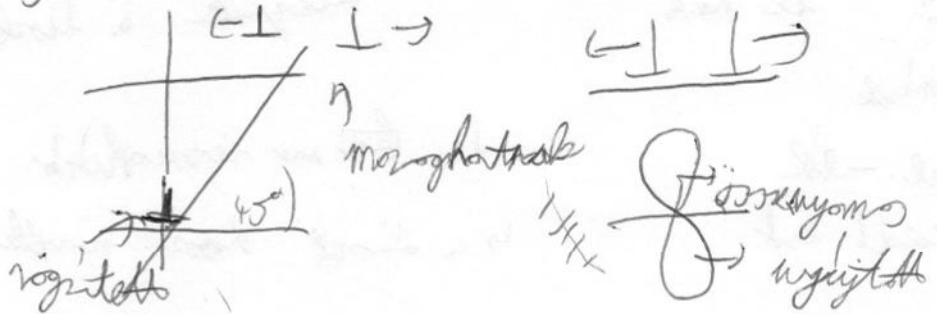 mozoghatnak
45°
rögzített
összenyomás
nyújtott